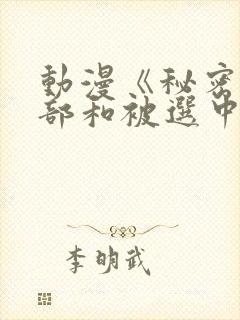 動漫《秘密
部和被選中
李明武